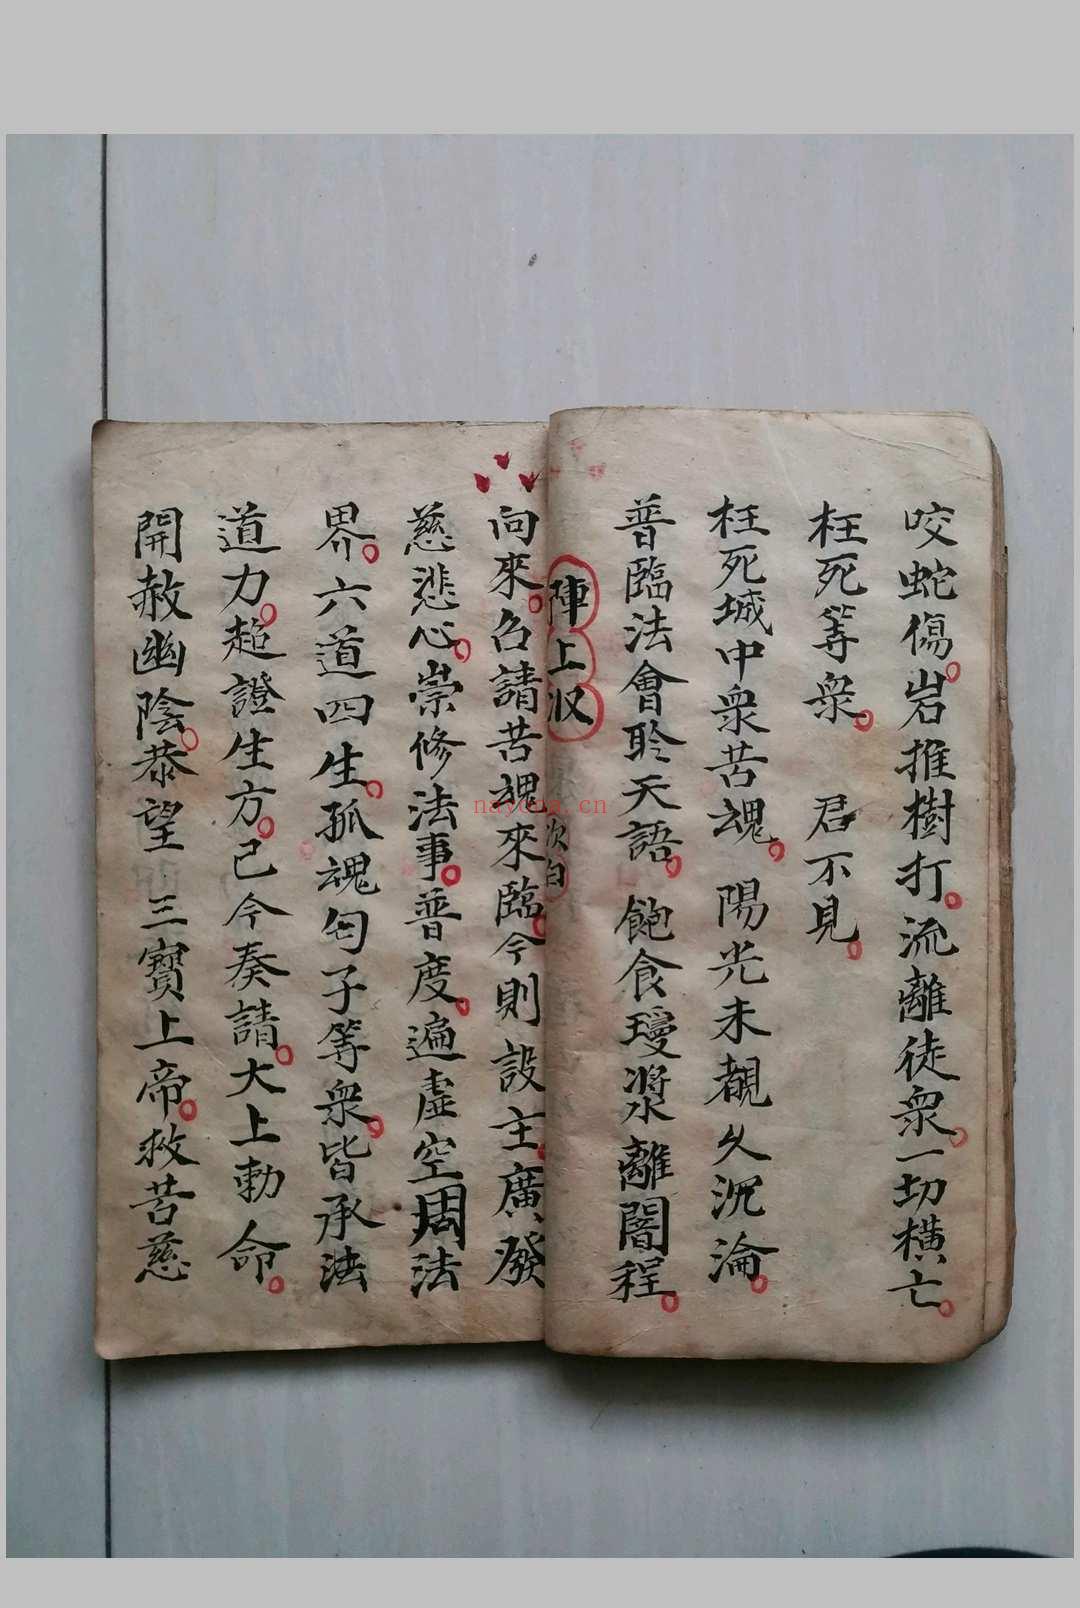 咬蛇傷岩推樹打流離徒衆一切橫亡
枉死等衆 君不見
枉死城中衆苦魂 陽光未覩久沉淪
普臨法會聆天語 飽食瓊漿離闇程
陣上収 次白
向來召請苦魂來臨今則設主廣發
慈悲心崇修法事普度遍虛空周法
界六道四生孤魂匄子等衆皆承法
道力超證生方已今奏請大上勅命
開赦幽陰恭望 三寶上帝救苦慈
nayona.cn